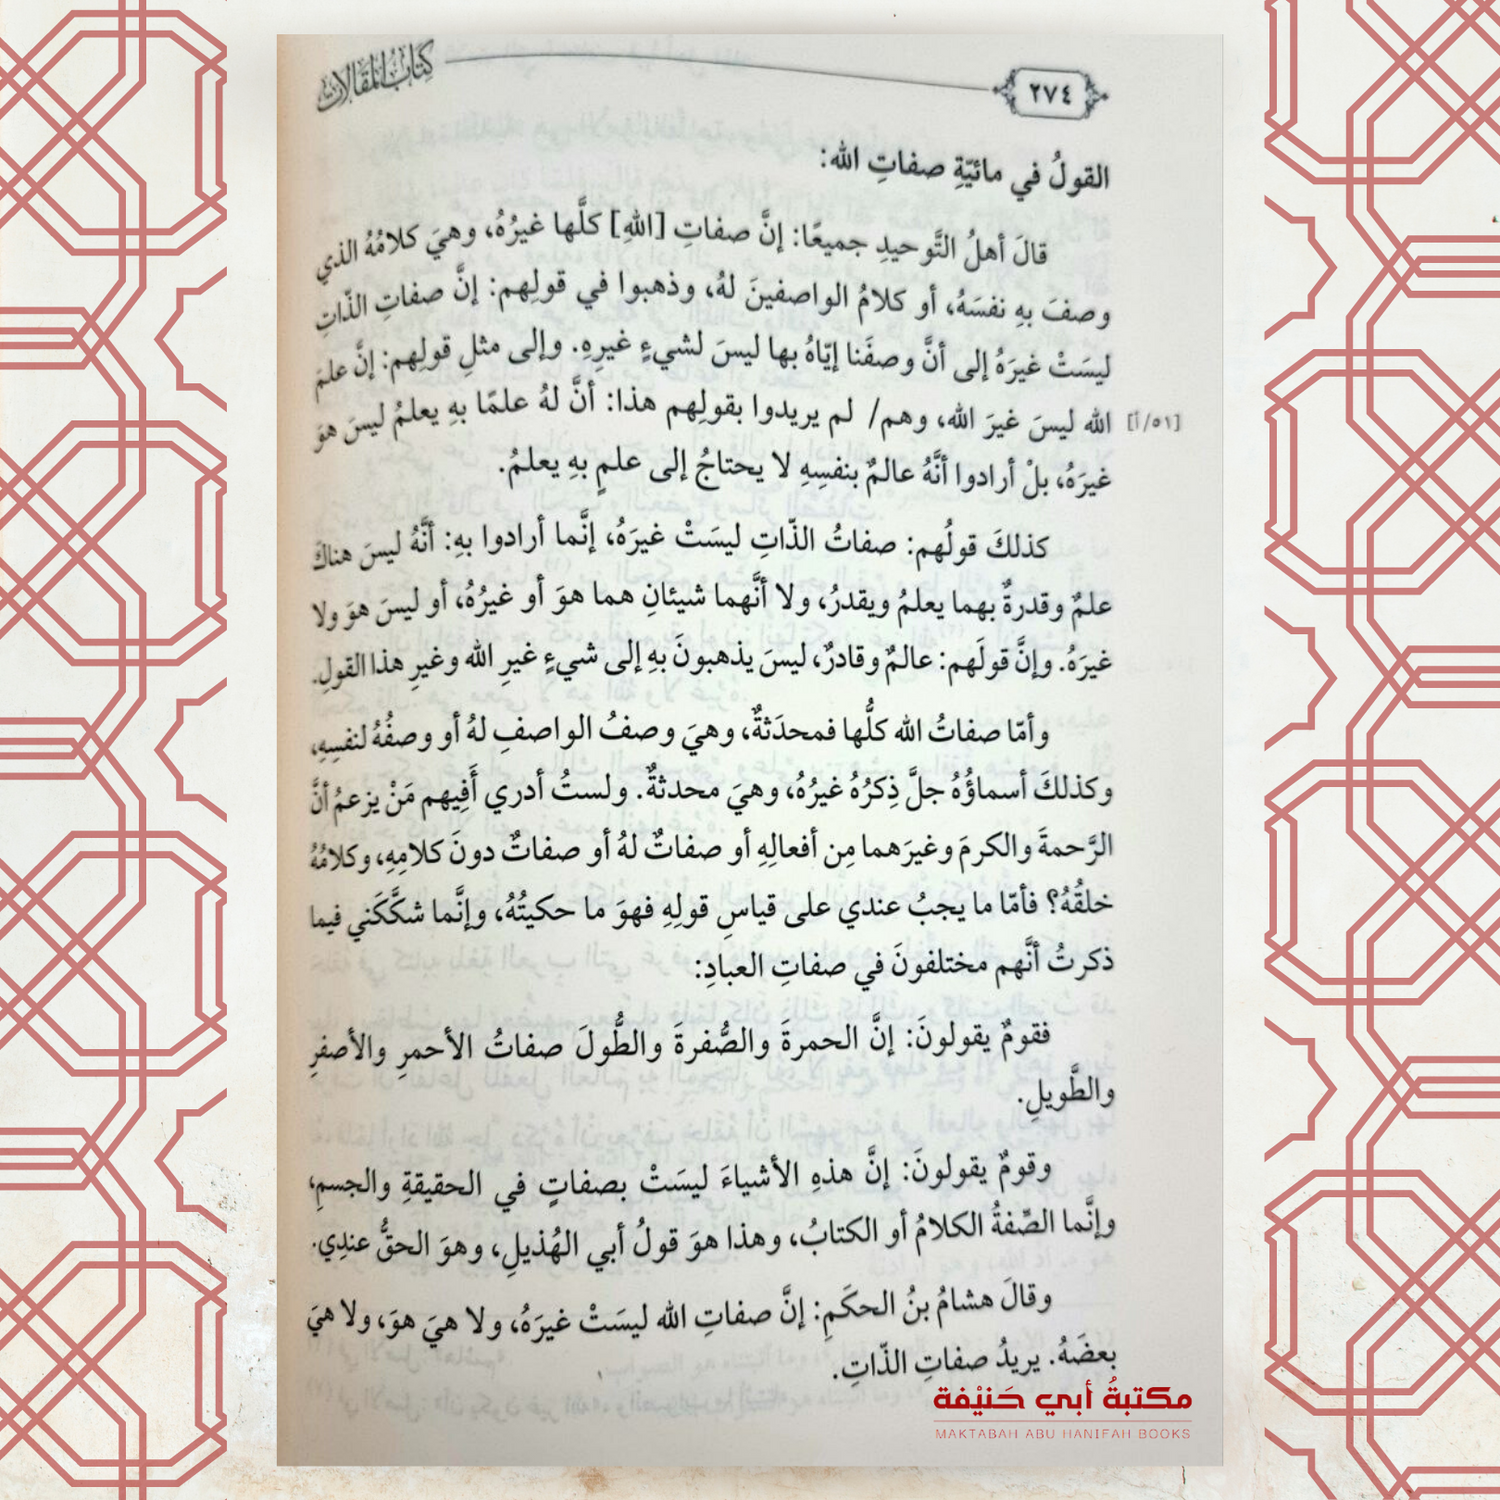 كتاب المقالات
٢٧٤
القولُ في مائيّةِ صفاتِ الله:
قالَ أهلُ التَّوحيدِ جميعًا: إنَّ صفاتِ [اللهِ] كلَّها غيرُهُ، وهيَ كلامُهُ الذي
وصفَ بهِ نفسَهُ، أو كلامُ الواصفينَ لهُ، وذهبوا في قولِهم: إنَّ صفاتِ الذّاتِ
ليسَتْ غيرَهُ إلى أنَّ وصفَنا إيّاهُ بها ليسَ لشيءٍ غيرِهِ. وإلى مثلِ قولِهم: إنَّ علمَ
الله ليسَ غيرَ الله، وهم/ لم يريدوا بقولِهم هذا: أنَّ لهُ علمًا بهِ يعلمُ ليسَ هوَ
[٥١/أ]
غيرَهُ، بلْ أرادوا أنَّهُ عالمٌ بنفسِهِ لا يحتاجُ إلى علمٍ بهِ يعلمُ.
كذلكَ قولُهم: صفاتُ الذّاتِ ليسَتْ غيرَهُ، إنَّما أرادوا بهِ: أنَّهُ ليسَ هناكَ
علمٌ وقدرةٌ بهما يعلمُ ويقدرُ، ولا أنَّهما شيئانِ هما هوَ أو غيرُهُ، أو ليسَ هوَ ولا
غيرَهُ. وإنَّ قولَهم: عالمٌ وقادرٌ، ليسَ يذهبونَ بهِ إلى شيءٍ غيرِ الله وغيرِ هذا القولِ.
وأمّا صفاتُ الله كلُّها فمحدَثةٌ، وهيَ وصفُ الواصفِ لهُ أو وصفُهُ لنفسِهِ،
وكذلكَ أسماؤُهُ جلَّ ذِكرُهُ غيرُهُ، وهيَ محدثةٌ. ولستُ أدري أَفِيهم مَنْ يزعمُ أنَّ
الرَّحمةَ والكرمَ وغيرَهما مِن أفعالِهِ أو صفاتٌ لهُ أو صفاتٌ دونَ كلامِهِ، وكلامُهُ
خلقُهُ؟ فأمّا ما يجبُ عندي على قياسِ قولِهِ فهوَ ما حكيتُهُ، وإنَّما شكَّكَني فيما
ذكرتُ أنَّهم مختلفونَ في صفاتِ العبادِ:
فقومٌ يقولونَ: إنَّ الحمرةَ والصُّفرةَ والطُّولَ صفاتُ الأحمرِ والأصفرِ
والطَّويلِ.
وقومٌ يقولونَ: إنَّ هذهِ الأشياءَ ليسَتْ بصفاتٍ في الحقيقةِ والجسمِ،
وإنَّما الصِّفةُ الكلامُ أو الكتابُ، وهذا هوَ قولُ أبي الهُذيلِ، وهوَ الحقُّ عندِي.
وقالَ هشامُ بنُ الحكَمِ: إنَّ صفاتِ الله ليسَتْ غيرَهُ، ولا هيَ هوَ، ولا هيَ
بعضَهُ. يريدُ صفاتِ الذّاتِ.
مكتبةُ أبي حَنيْفة
MAKTABAH ABU HANIFAH BOOKS